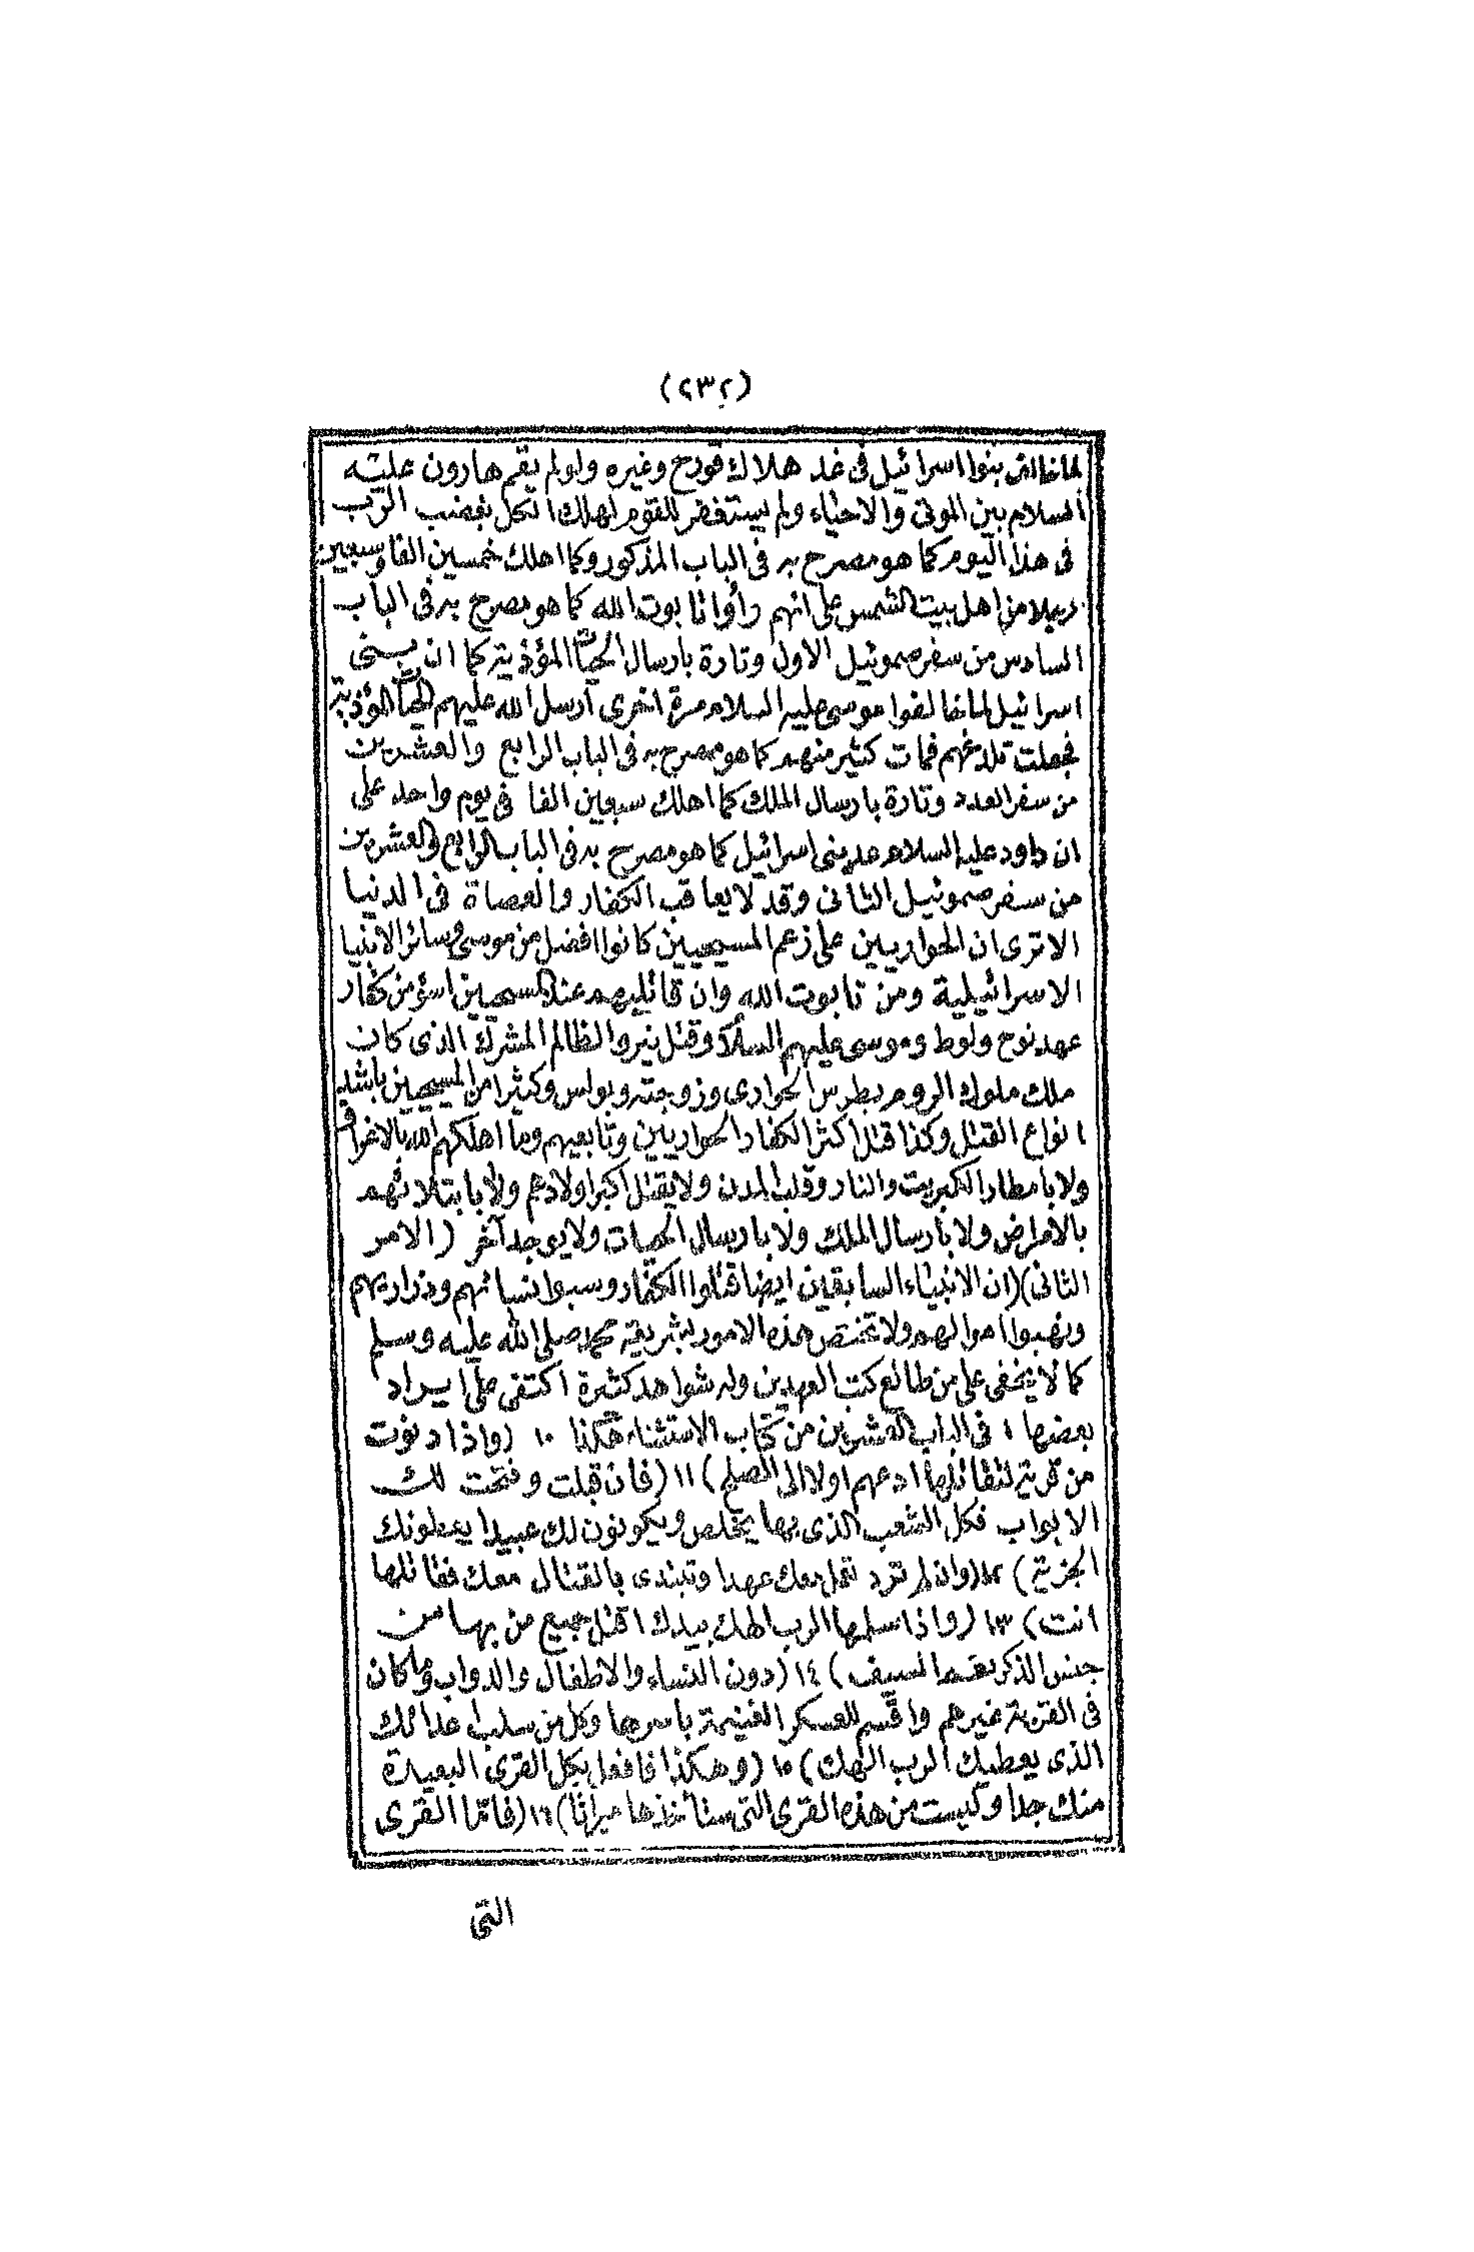 (٢٣٢)
لما خالف بنوا اسرائيل فى غد هلاك قورح وغيره ولو لم يقم هارون عليه
السلام بين الموتى والاحياء ولم يستغفر للقوم لهلك الكل بغضب الرب
فى هذا اليوم كما هو مصرح به فى الباب المذكور وكما اهلك خمسين الفا وسبعين
رجلا من اهل بيت الشمس على انهم رأوا تابوت الله كما هو مصرح به فى الباب
السادس من سفر صموئيل الاول وتارة بارسال الحيات المؤذية كما ان بنى
اسرائيل لما خالفوا موسى عليه السلام مرة اخرى ارسل الله عليهم الحيات المؤذية
فجعلت تلدغهم فمات كثير منهم كما هو مصرح به فى الباب الرابع والعشرين
من سفر العدد وتارة بارسال الملك كما اهلك سبعين الفا فى يوم واحد على
ان داود عليه السلام عد بنى اسرائيل كما هو مصرح به فى الباب الرابع والعشرين
من سفر صموئيل الثانى وقد لا يعاقب الكفار والعصاة فى الدنيا
الا ترى ان الحواريين على زعم المسيحيين كانوا افضل من موسى وسائر الانبيا
الاسرائيلية ومن تابوت الله وان قاتليهم عند المسيحيين اسؤ من كفار
عهد نوح ولوط وموسى عليهم السلام وقتل نيرو الظالم المشرك الذى كان
ملك ملوك الروم بطرس الحوارى وزوجته وبولس وكثيرا من المسيحيين باشد
انواع القتل وكذا قتل اكثر الكفار الحواريين وتابعيهم وما اهلكهم الله بالاغراق
ولا بامطار الكبريت والنار وقلب المدن ولا بقتل اكبر اولادهم ولا بابتلائهم
بالامراض ولا بارسال الملك ولا بارسال الحيات ولا بوجه آخر (الامر
الثانى) (ان الانبياء السابقين ايضا قتلوا الكفار وسبوا نسائهم وذراريهم
ونهبوا اموالهم ولا تختص هذه الامور بشريعة محمد صلى الله عليه وسلم
كما لا يخفى على من طالع كتب العهدين وله شواهد كثيرة اكتفى على ايراد
بعضها ١ فى الباب العشرين من كتاب الاستثناء هكذا ١٠ (واذا دنوت
من قرية لتقاتلها ادعهم اولا الى الصلح) ١١ (فان قبلت وفتحت لك
الابواب فكل الشعب الذى بها يخلص ويكونون لك عبيدا يعطونك
الجزية) ١٢ (وان لم ترد تعمل معك عهدا وتبتدى بالقتال معك فقاتلها
انت) ١٣ (واذا سلمها الرب الهك بيدك اقتل جميع من بها من
جنس الذكر بفم السيف) ١٤ (دون النساء والاطفال والدواب وما كان
فى القرية غيرهم واقسم للعسكر الغنيمة باسرها وكل من سلب اعدائك
الذى يعطيك الرب الهك) ١٥ (وهكذا فافعل بكل القرى البعيدة
منك جدا وليست من هذه القرى التى ستأخذها ميراثا) ١٦ (فاما القرى
التى